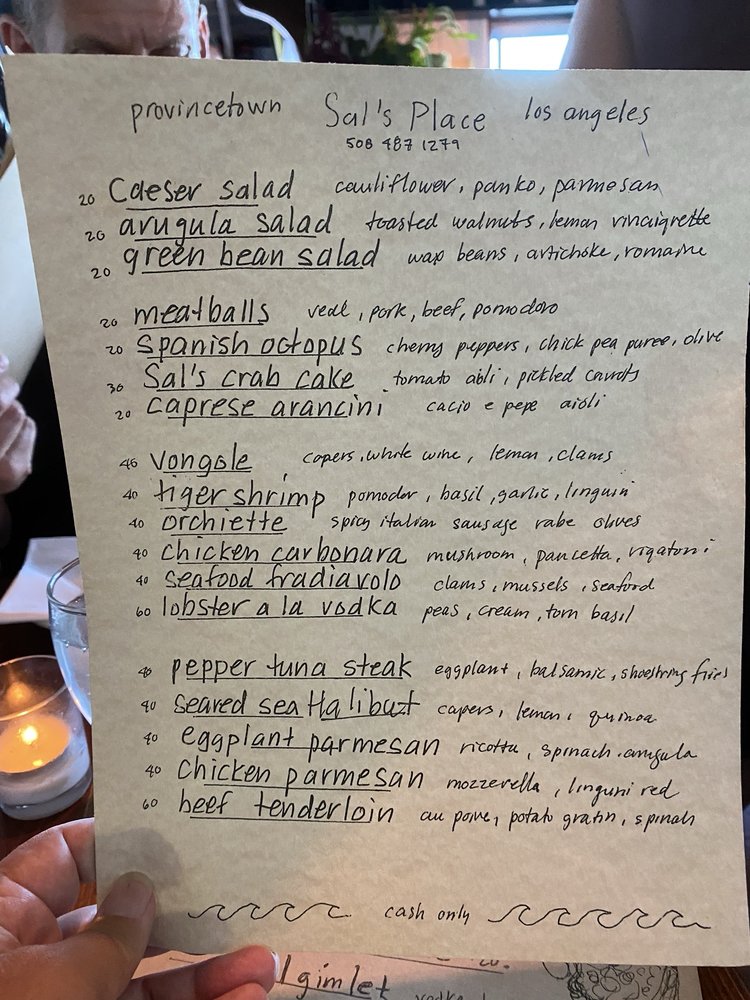 provincetown Sal's Place los angeles
508 487 1279
20 Caeser salad cauliflower, panko, parmesan
20 arugula salad toasted walnuts, lemon vincigrette
20 green bean salad wax beans, artichoke, romaine
20 meatballs veal, pork, beef, pomodoro
20 Spanish octopus cherry peppers, chick pea puree, olive
30 Sal's crab cake tomato aoli, pickled carrots
20 caprese arancini cacio e pepe aioli
46 vongole capers, white wine, lemon, clams
40 tiger shrimp pomodor, basil, garlic, linguini
40 orchiette spicy italian sausage rabe olives
40 chicken carbonara mushroom, pancetta, rigatoni
40 seafood fradiavolo clams, mussels, seafood
60 lobster a la vodka peas, cream, torn basil
40 pepper tuna steak eggplant, balsamic, shoestring fries
40 seared sea Halibut capers, lemon, quinoa
40 eggplant parmesan ricotta, spinach. arugula
40 Chicken parmesan mozzerella, linguni red
60 beef tenderloin au poive, potato gratin, spinah
cash only
gimlet vodka